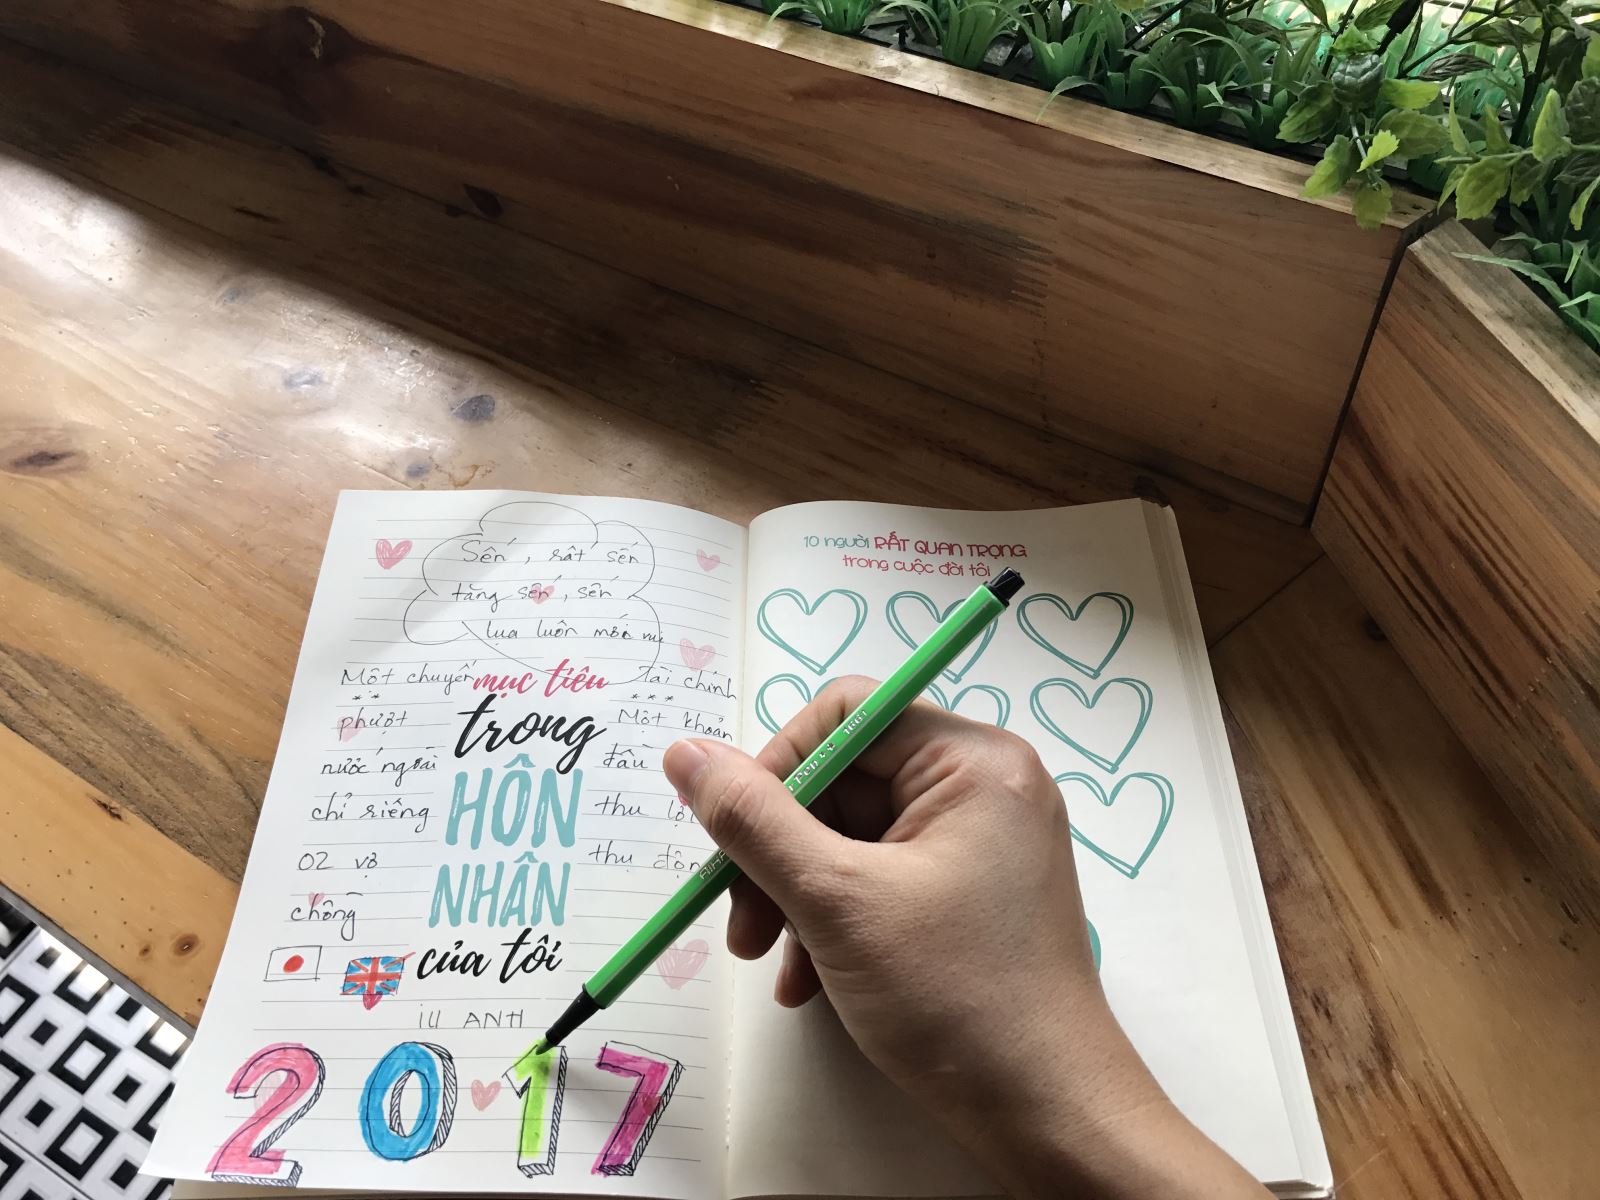 Sến, rất sến
tăng sến, sến
lụa luôn mới
Một chuyến
phượt
nước ngoài
chỉ riêng
02 vợ
chồng
mục tiêu
trong
HÔN
NHÂN
của tôi
tài chính
***
Một khoản
đầu
thu lợi
thụ độn
iu ANH
2017
10 người RẤT QUAN TRỌNG
trong cuộc đời tôi
Pen 1661